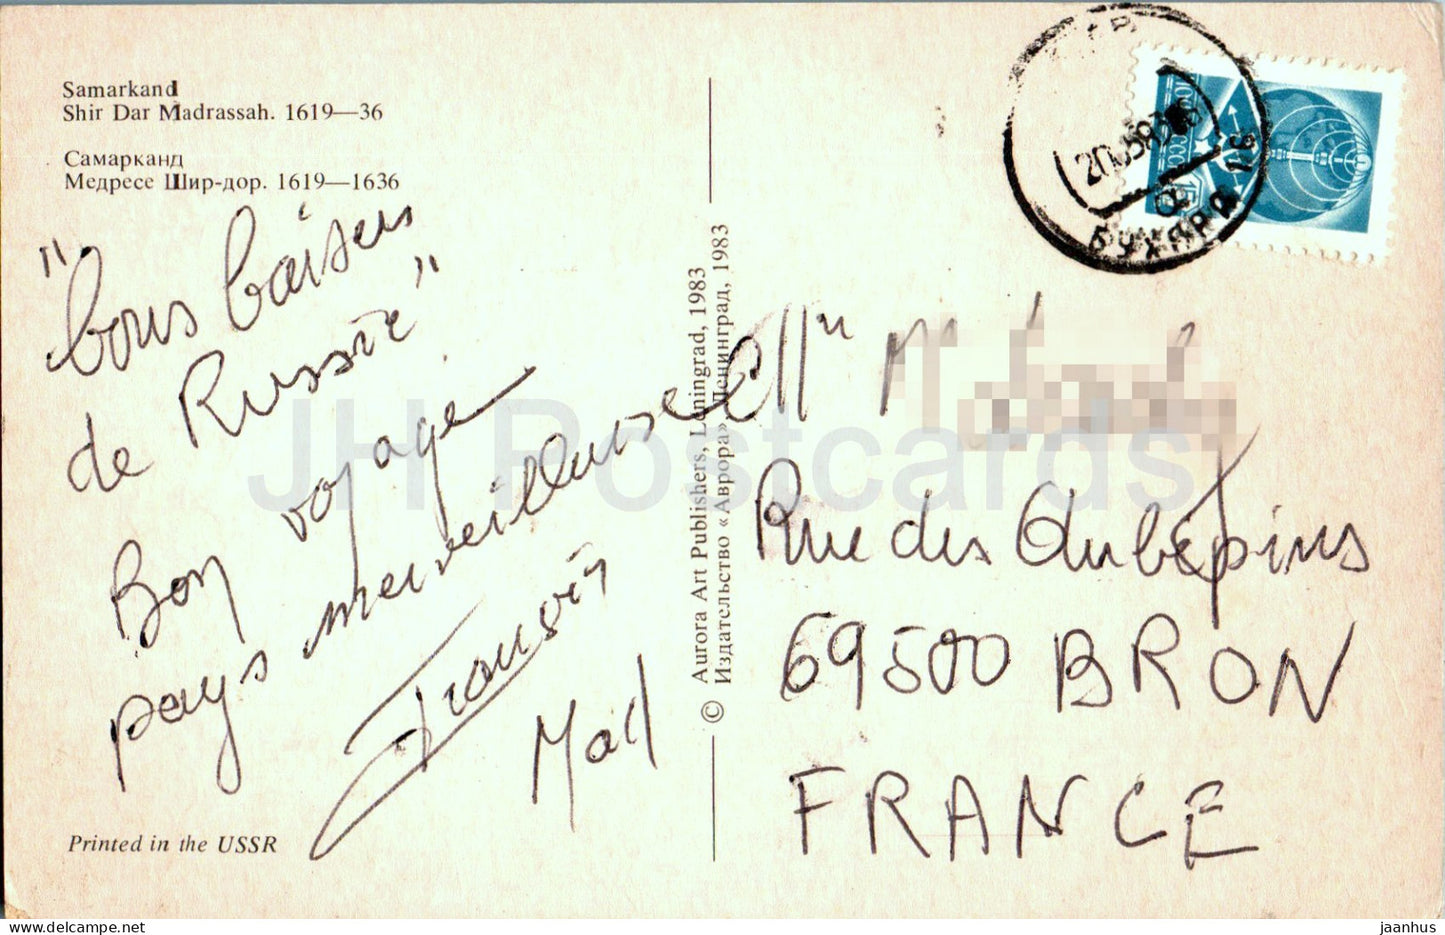 Samarkand
Shir Dar Madrassah. 1619—36
Самарканд
Медресе Шир-дор. 1619—1636
"bons baisers
de Russie"
Bon voyage
pays merveilleuse
Mall
Printed in the USSR
© Aurora Art Publishers, Leningrad, 1983
Издательство «Аврора», Ленинград, 1983
Rue des Aubépins
69500 BRON
FRANCE
БУХАРА
JH Postcards
www.delcampe.net
jaanhus